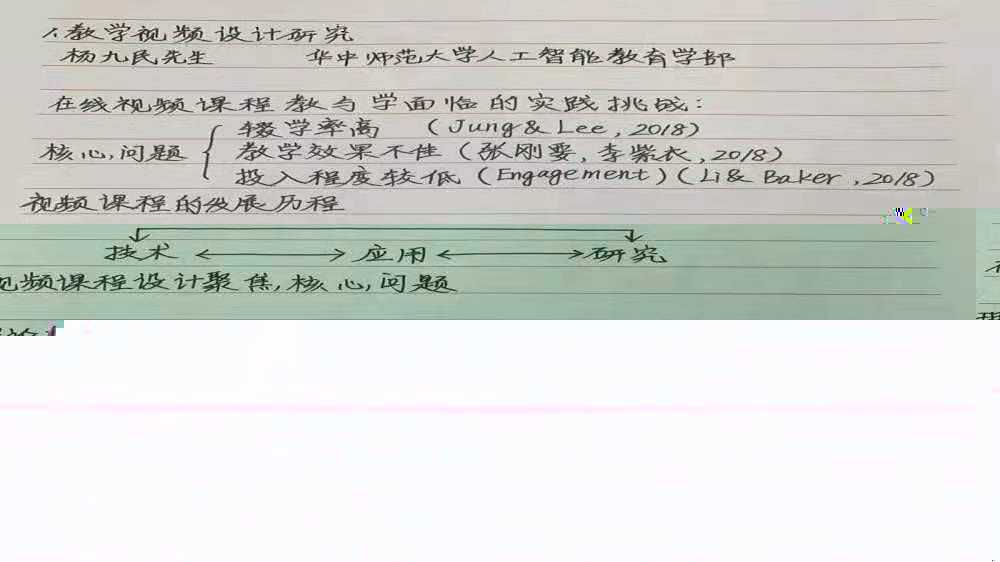 1.教学视频设计研究
杨九民先生 华中师范大学人工智能教育学部
在线视频课程教与学面临的实践挑战:
辍学率高 (Jung & Lee, 2018)
核心问题 { 教学效果不佳 (张刚要, 李紫衣, 2018)
投入程度较低 (Engagement) (Li & Baker, 2018)
视频课程的发展历程
技术 ←→ 应用 ←→ 研究
视频课程设计聚焦核心问题